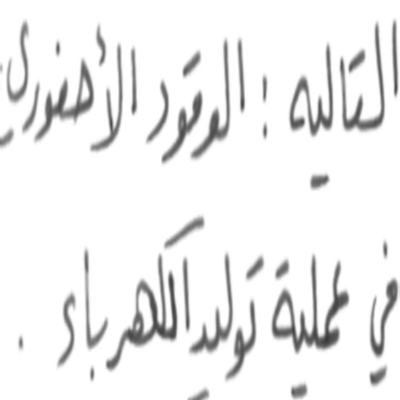 التاليه : الوقود الأحفوري
في عملية توليد الكهرباء .